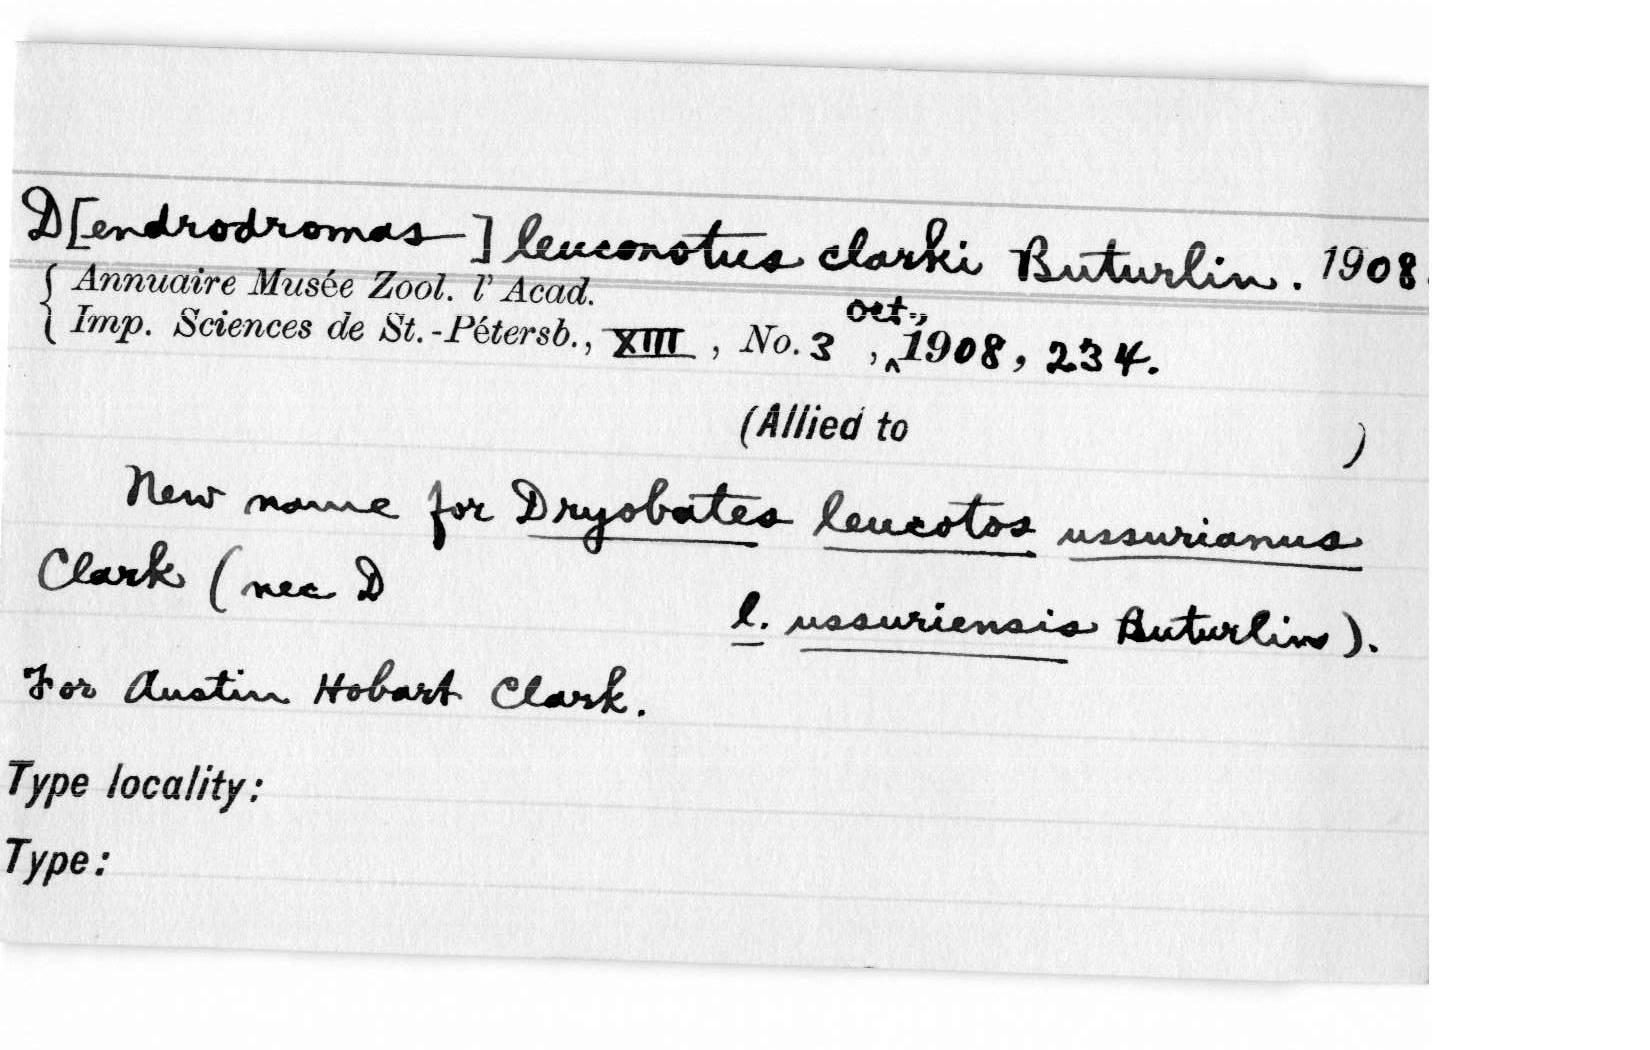 D[endrodromas] leuconotus clarki Buturlin. 1908.
Annuaire Musée Zool. l' Acad.
Imp. Sciences de St.-Pétersb., XIII, No. 3, Oct., 1908, 234.
(Allied to )
New name for Dryobates leucotos ussurianus
Clark (nec D l. ussuriensis Buturlin).
For Austin Hobart Clark.
Type locality:
Type: